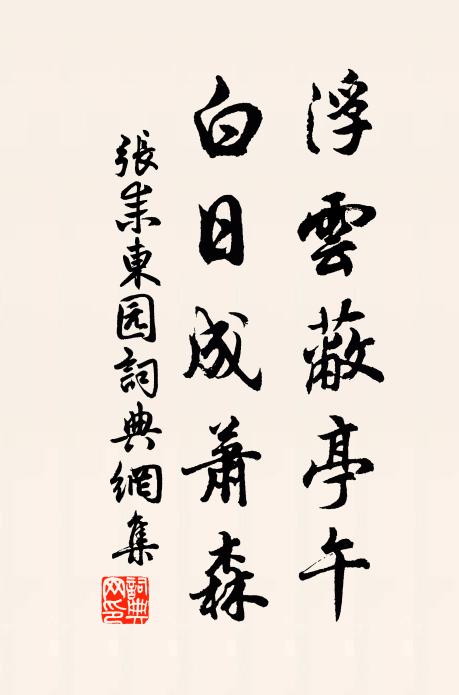 浮雲蔽亭午
白日成蕭森
張耒東园詞典網集
詞典网印